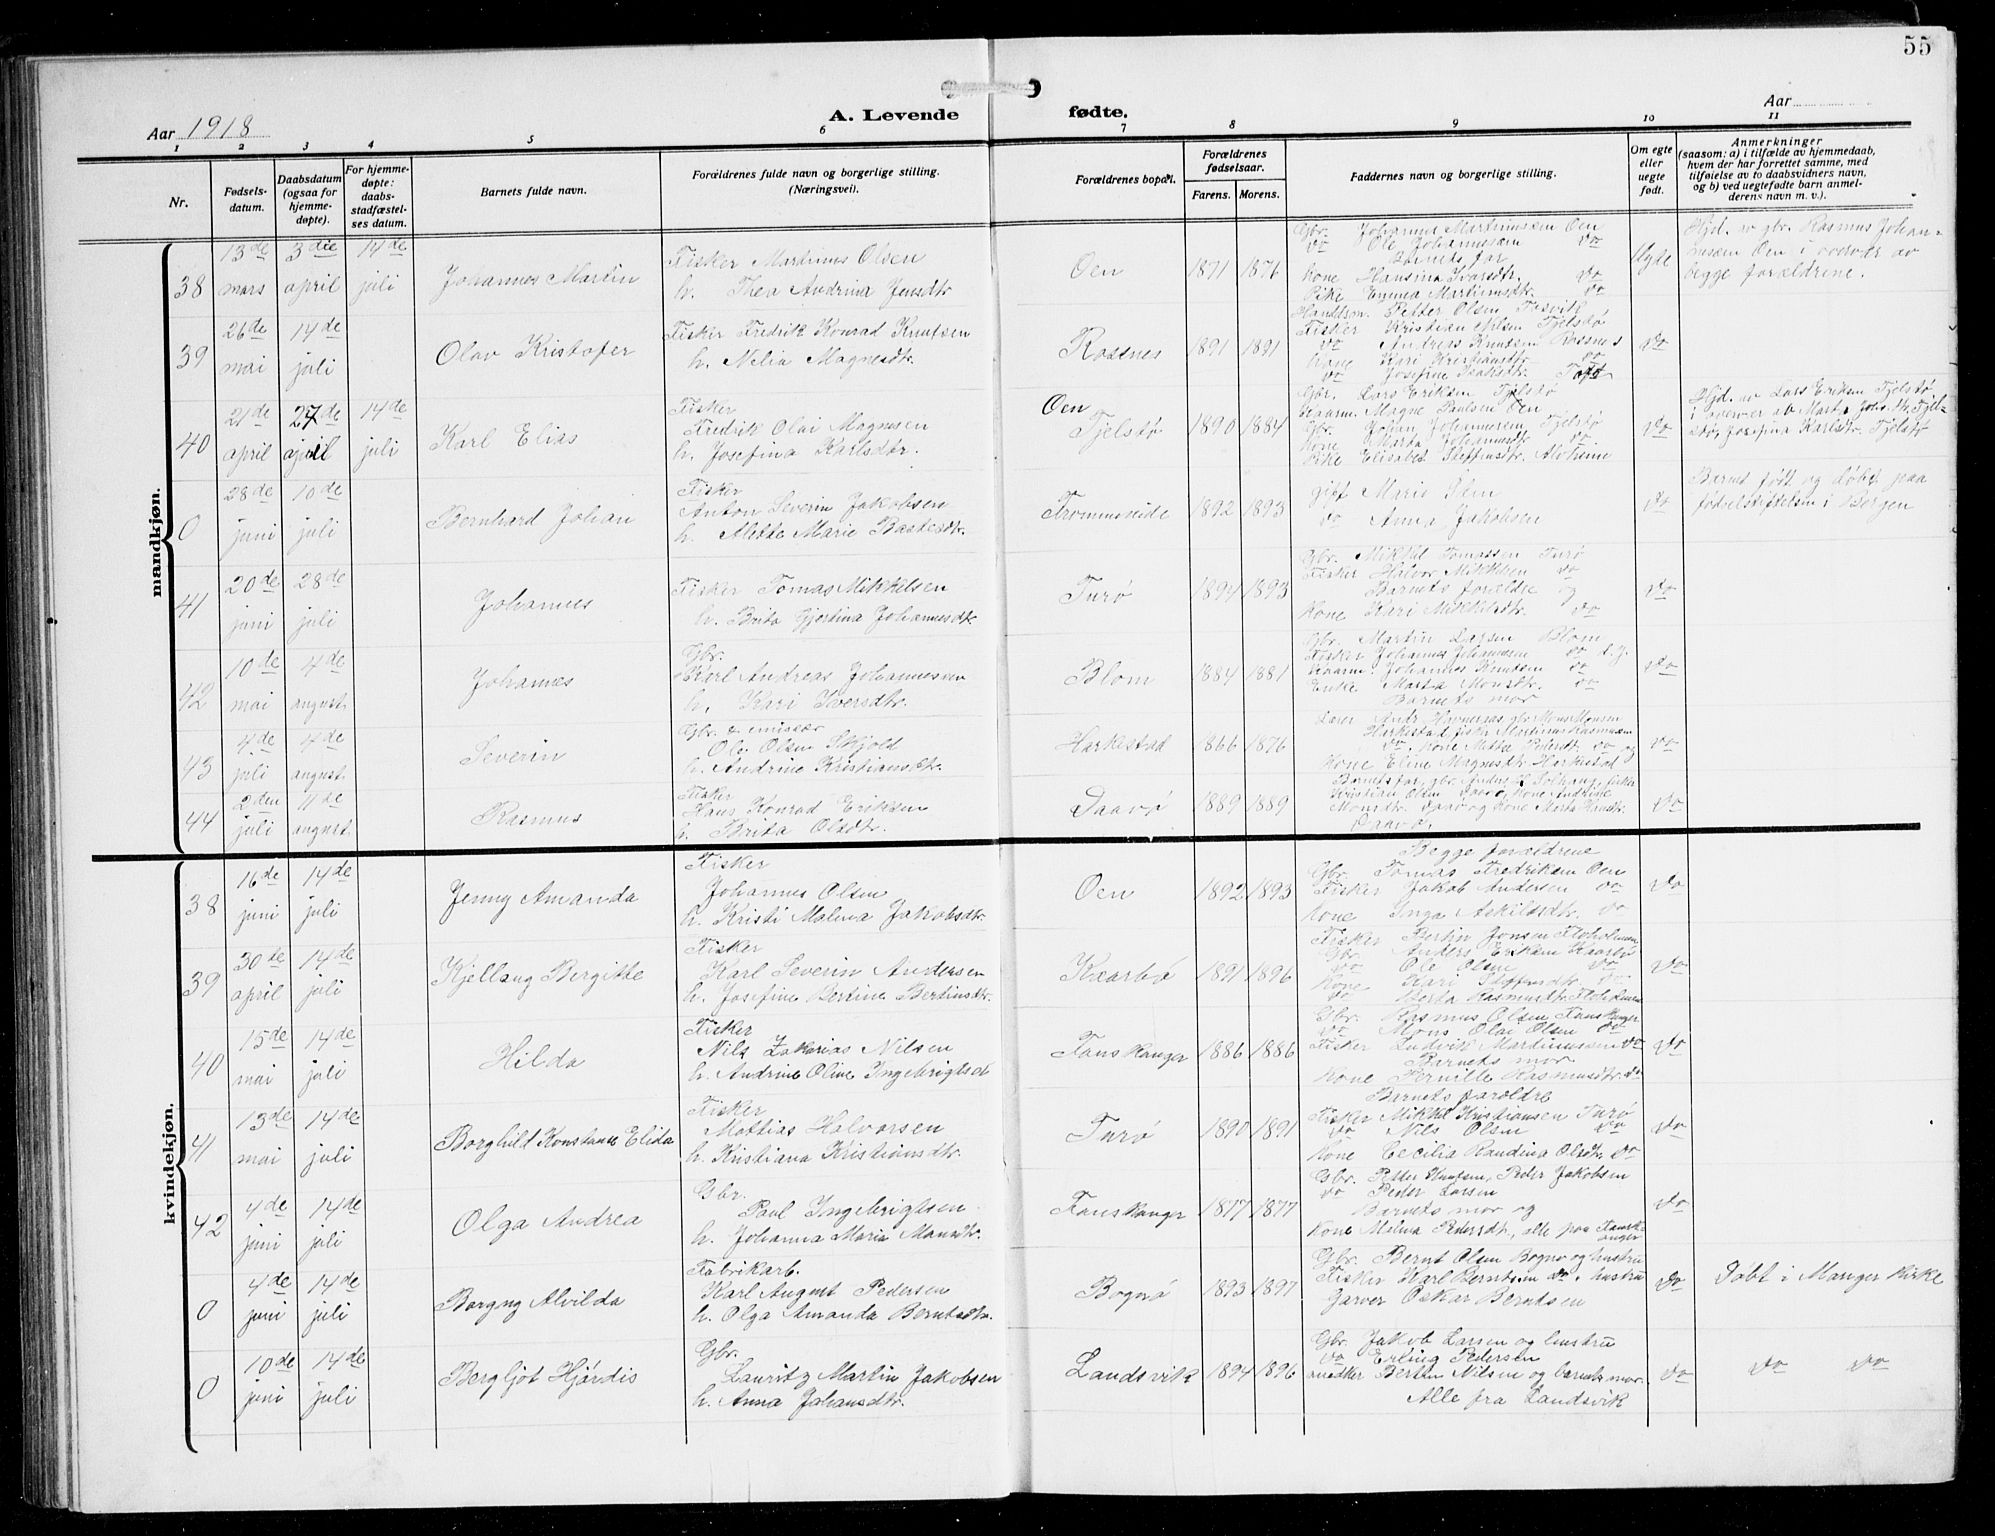 55
Aar 1918
A. Levende fødte.
Aar
1 2 3 4 5 6 7 8 9 10 11
Nr.
Fødsels-
datum.
Daabsdatum
(ogsaa for
hjemme-
døpte).
For hjemme-
døpte:
daabs-
stadfæstel-
ses datum.
Barnets fulde navn.
Forældrenes fulde navn og borgerlige stilling.
(Næringsvei).
Forældrenes bopæl.
Forældrenes
fødselsaar.
Farens. Morens.
Faddernes navn og borgerlige stilling.
Om egte
eller
uegte
født.
Anmerkninger
(saasom: a) i tilfælde av hjemmedaab,
hvem der har forrettet samme, med
tilføielse av to daabsvidners navn,
og b) ved uegtefødte barn anmel-
derens navn m. v.).
mandkjøn.
38
13de mars
3die april
14de juli
Johannes Martin
Fisker Martinus Olsen
h. Thea Andrina Jensdtr
Oen
1871 1876
Gbr. Johannes Martinussen Oen
do Ole Johannessen do
Barnets far
Kone Hansina Ivarsdtr. do
Pike Emma Martinusdtr. do
Egte
Hjd. av gbr. Rasmus Johan-
nesen Oen i overvær av
begge forældrene.
39
26de mai
14de juli
Olav Kristofer
Fisker Fredrik Konrad Knutsen
h. Nelia Magnesdtr.
Rossnes
1891 1891
Handelsm. Petter Olsen
Fisker Kristian Nilsen Tjelstø
do Andreas Knutsen Rossnes
Kone Kari Kristiansdtr do
do Josefine Isaksdtr. Toft
do
40
21de april
27de april
14de juli
Karl Elias
Fisker
Fredrik Olai Magnesen
h. Josefina Karlsdtr.
Oen
Tjelstø
1890 1884
Gbr. Lars Eriksen Tjelstø
Kaarm. Magne Paulsen Oen
Gbr. Johan Johannesen Tjelstø
Kone Marta Johannesdtr do
Pike Elisabet Steffensdtr. Alvheim
do
Hjd. av Lars Eriksen Tjelstø
i overvær av Marta Johs.dtr. Tjel-
stø, Josefina Karlsdtr. Tjelstø
0
28de juni
10de juli
Bernhard Johan
Fisker
Anton Severin Jakobsen
h. Mette Marie Bastesdtr.
Trommeneide
1892 1893
gift Marie
do Anna Jakobsen
do
Barnet født og døbt paa
fødselsstiftelsen i Bergen
41
20de juni
28de juli
Johannes
Fisker Tomas Mikkelsen
h. Brita Gjertina Johannesdtr
Turø
1894 1893
Gbr. Mikkel Tomassen Turø
Fisker Halvor Mikkelsen do
Barnets forældre og
Kone Kari Mikkelsdtr. do
do
42
10de mai
4de august
Johannes
Gbr.
Karl Andreas Johannessen
h. Kari Iversdtr.
Blom
1884 1881
Gbr. Martin Larsen Blom
Fisker Johannes Johannesen do d.y.
Kaarm. Johannes Knutsen do
Enke Marta Monsdtr. do
Barnets mor
do
43
4de juli
4de august
Severin
Gbr. & emissær
Ole Olsen Skjold
h. Andrine Kristiansdtr.
Herkestad
1866 1876
Lærer Andr. Havneraas, gbr. Mons Monsen
Herkestad, fisker Martinus Rasmussen
do, kone Metta Pedersdt. do og
Kone Eline Magnesdtr Herkestad
do
44
2den juli
11de august
Rasmus
Fisker
Hans Konrad Eriksen
h. Brita Olsdtr.
Daavø
1889 1889
Barnets far, gbr. Anders fisker
Kristian Olsen Daavø, kone
Monsdtr Daavø og Kone Marta Knutsdtr.
Daavø.
do
kvindekjøn.
38
16de juni
14de juli
Jenny Amanda
Fisker
Johannes Olsen
h. Kristi Malena Jakobsdtr.
Oen
1892 1893
Begge forældrene
Gbr. Tomas Fredriksen Oen
Fisker Jakob Andersen do
Kone Inga Askildsdtr. do
do
39
30de april
14de juli
Kjellaug Bergitte
Fisker
Karl Severin Andersen
h. Josefine Bertine Bertinsdtr.
Kaarbø
1891 1896
Fisker Bertin Jonsen Floholmen
Gbr. Anders Eriksen Kaarbø
do Ole Olsen do
Kone Kari Steffensdt. do
do Berta Rasmusdtr. Floholmen
do
40
15de mai
14de juli
Hilda
Fisker
Nils Zakarias Nilsen
h. Andrine Oline Ingebrigtsd
Fanskanger
1886 1886
Gbr. Rasmus Olsen Fanskanger
do Mons Olai Olsen do
Fisker Ludvik Martinussen do
Barnets mor
Kone Pernille Rasmusdtr. do
do
41
13de mai
14de juli
Borghild Konstanse Elida
Fisker
Mattias Halvorsen
h. Kristiana Kristiansdtr.
Turø
1890 1891
Barnets foraldre
Fisker Mikkel Kristiansen Turø
do Nils Olsen do
Kone Cecilia Randina Olsdtr. do
do
42
4de juni
14de juli
Olga Andrea
Gbr.
Paul Ingebrigtsen
h. Johanna Maria Mansdtr.
Fanskanger
1877 1877
Gbr. Petter Knutsen, Peder Jakobsen
do Peder Larsen
Barnets mor og
Kone Malena Pedersdtr., alle paa Fansk-
anger
do
0
4de juni
14de juli
Borgny Alvilda
Fabrikarb.
Karl August Pedersen
h. Olga Amanda Berntsdtr.
Bognø
1893 1897
Gbr. Bernt Olsen Bognø og hustru
Fisker Karl Berntsen do. hustru
Garver Oskar Berntsen
do
Døbt i Manger kirke
0
10de juni
14de juli
Bergljot Hjørdis
Gbr.
Lauritz Martin Jakobsen
h. Anna Johansdtr.
Landsvik
1894 1896
Gbr. Jakob Larsen og hustru
do Erling Pedersen
snedker Bertin Nilsen og barnets mor.
Alle fra Landsvik
do
do do